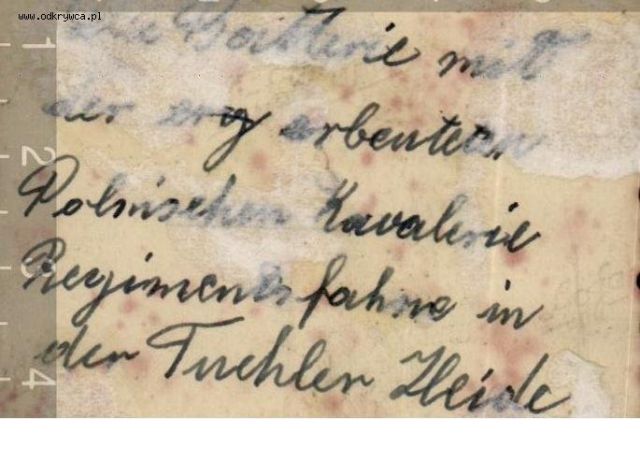 www.odkrywca.pl
1
die Batterie mit
der erbeuteten
2
Polnischen Kavalerie
3
Regimentsfahne in
der Tuchler Heide
4